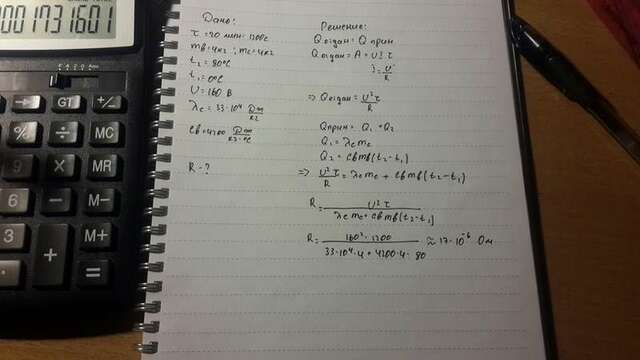 0001731601
GT
+/-
%
÷
MC
9
×
MR
6
-
M-
3
+
M+
=
Дано:
τ = 20 мин = 1200с
mв = 4кг ; mс = 4кг
t₂ = 80°С
t₁ = 0°С
U = 160 В
λс = 33·10⁴ Дж/кг
св = 4200 Дж/кг·°С
R - ?
Решение:
Qотдан = Qприн
Qотдан = A = UIτ
I = U/R
⇒ Qотдан = U²τ/R
Qприн = Q₁ + Q₂
Q₁ = λсmс
Q₂ = свmв(t₂-t₁)
⇒ U²τ/R = λсmс + свmв(t₂-t₁)
R = U²τ/λсmс+свmв(t₂-t₁)
R = 160²·1200/33·10⁴·4+4200·4·80 ≈ 17·10⁻⁶ Ом